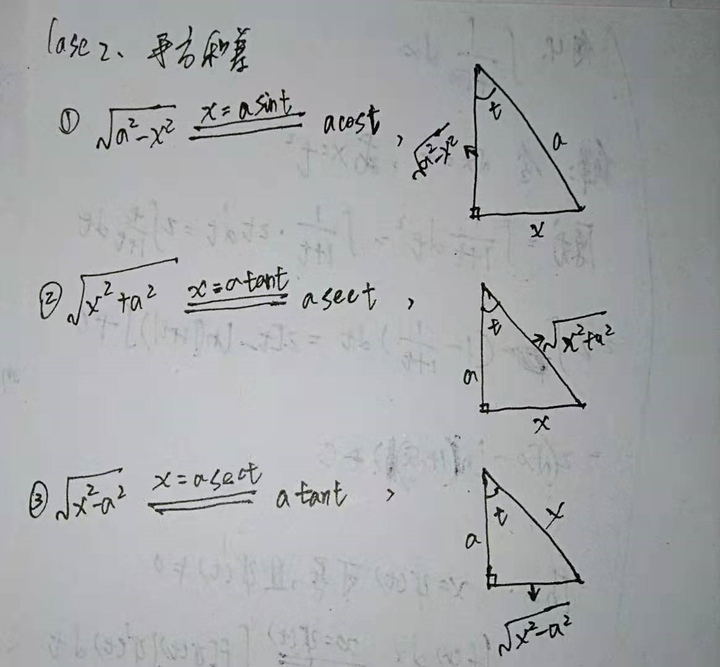 Case 2、平方和差
① √(a²-x²) x=asint acost,
t
a
√(a²-x²)
x
② √(x²+a²) x=atant asect,
t
√(x²+a²)
a
x
③ √(x²-a²) x=asect atant,
t
x
a
√(x²-a²)